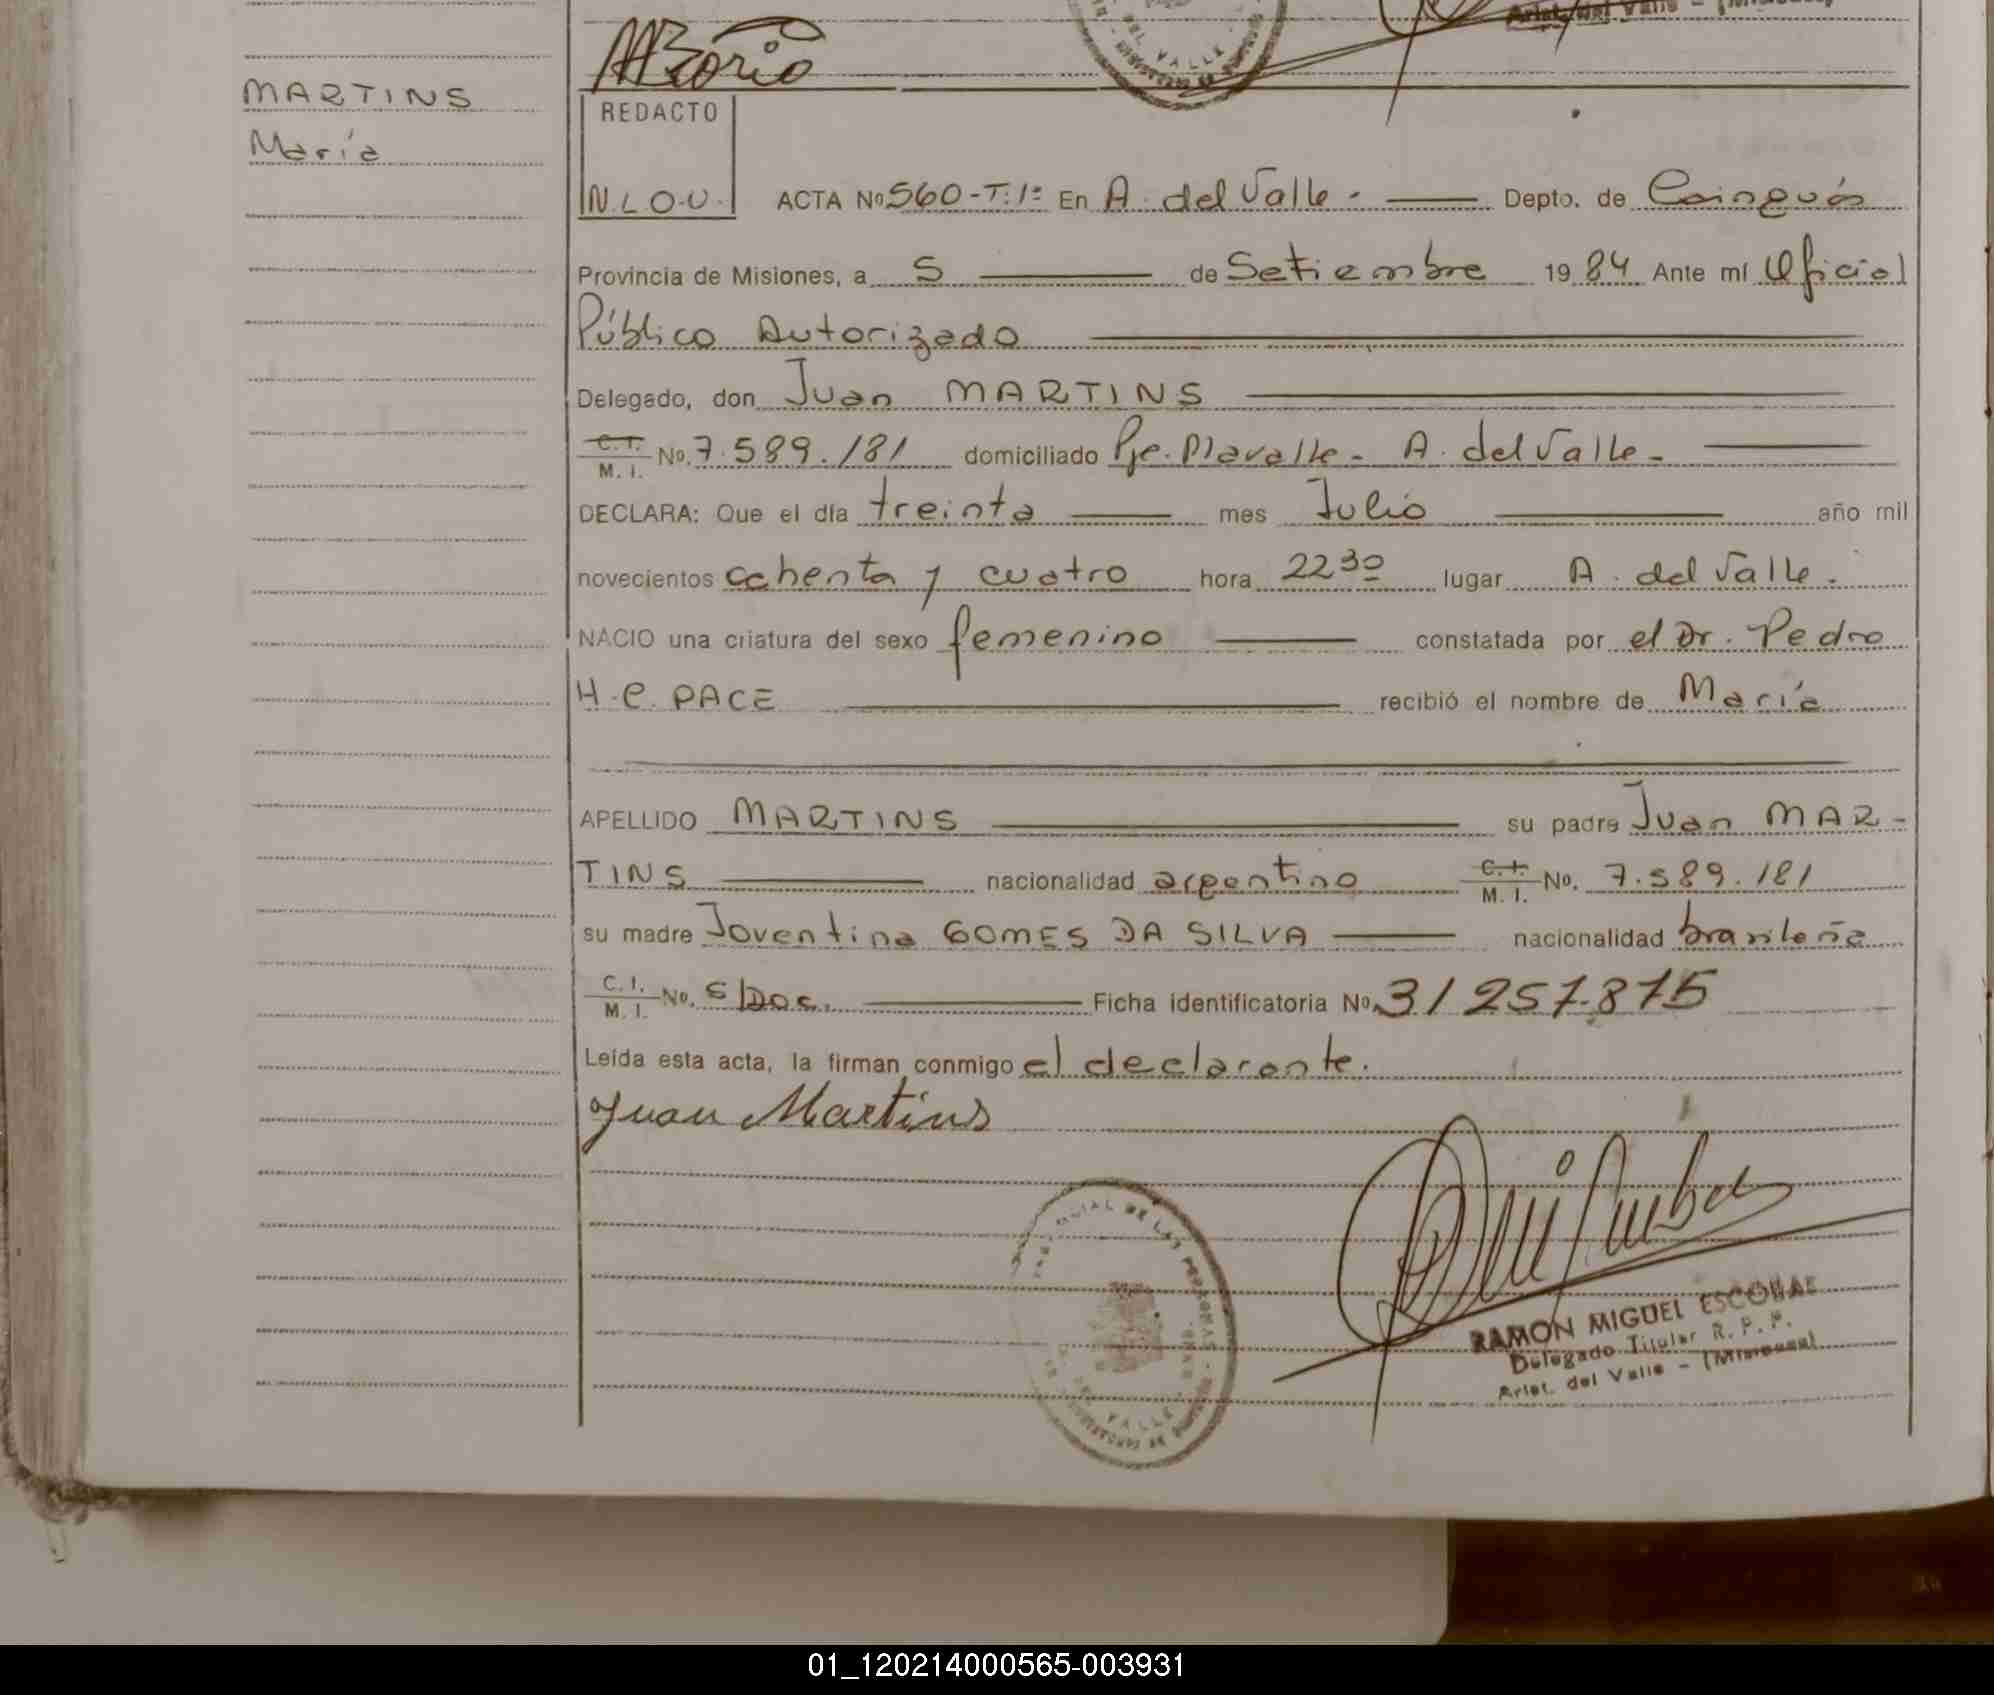 Arist. del Valle - (Misiones)
DEL VALLE
MARTINS
María
REDACTO
N.L.O.U.
ACTA No 560-T:1º En A. del Valle. Depto. de Cainguás
Provincia de Misiones, a 5 de Setiembre 1984 Ante mí Oficial
Público Autorizado
Delegado, don Juan MARTINS
C.I. M.I. No. 7.589.181 domiciliado Pje. Plavalle - A. del Valle -
DECLARA: Que el día treinta mes Julio año mil
novecientos ochenta y cuatro hora 22 30 lugar A. del Valle.
NACIO una criatura del sexo femenino constatada por el Dr. Pedro
H.C. PACE recibió el nombre de María
APELLIDO MARTINS su padre Juan MAR-
TINS nacionalidad argentino C.I. M.I. No. 7.589.181
su madre Joventina GOMES DA SILVA nacionalidad brasileña
C.I. M.I. No. s/Doc. Ficha identificatoria No. 31257.875
Leída esta acta, la firman conmigo el declarante.
Juan Martins
DE LAS PERSONAS
DEL VALLE
RAMON MIGUEL ESCOBAR
Delegado Titular R. P. P.
Arist. del Valle - (Misiones)
01_120214000565-003931